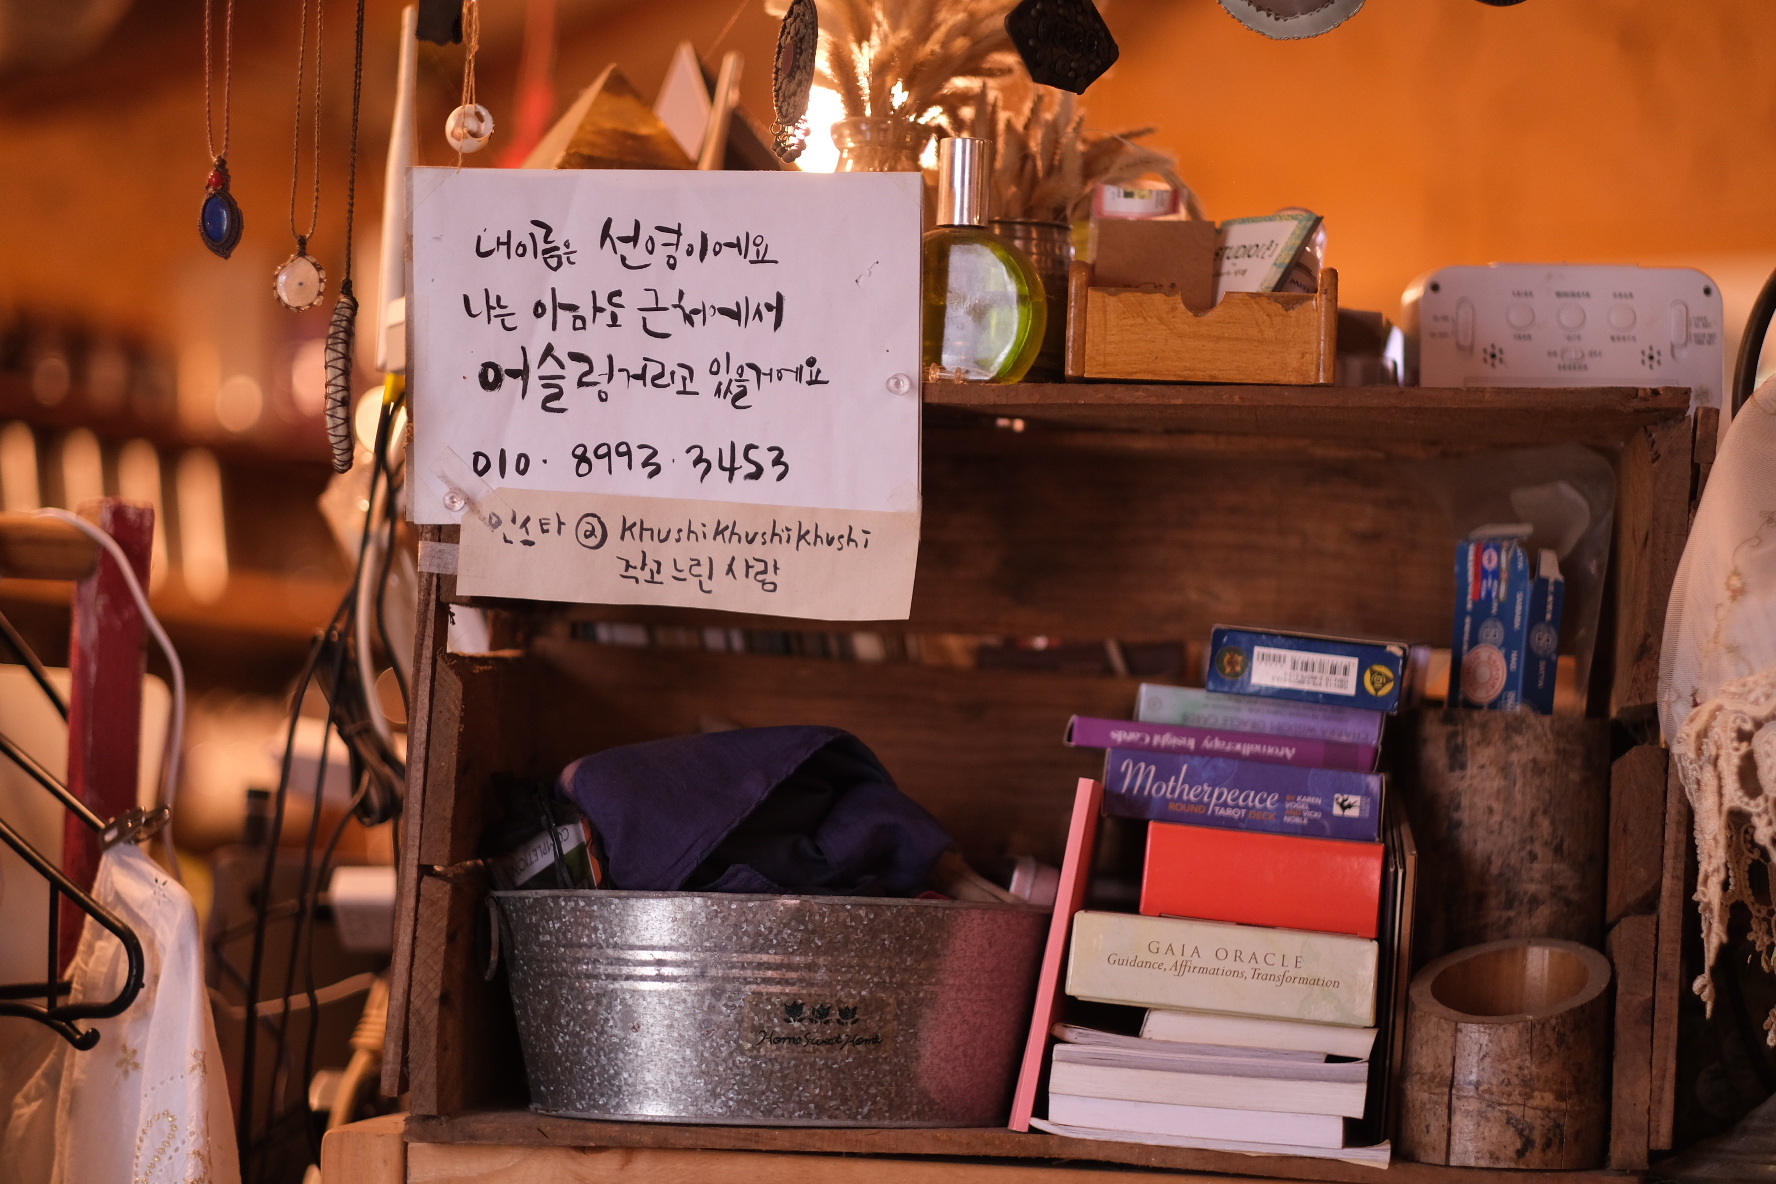 내이름은 선영이에요
나는 아마도 근처에서
어슬렁거리고 있을거에요
010· 8993· 3453
인스타 @ khushikhushikhushi
작고 느린 사람
STUDIO
Aromatherapy Insight Cards
Motherpeace
ROUND / TAROT DECK
BY KAREN
VOGEL
AND VICKI
NOBLE
GAIA ORACLE
Guidance, Affirmations, Transformation
Home Sweet Home